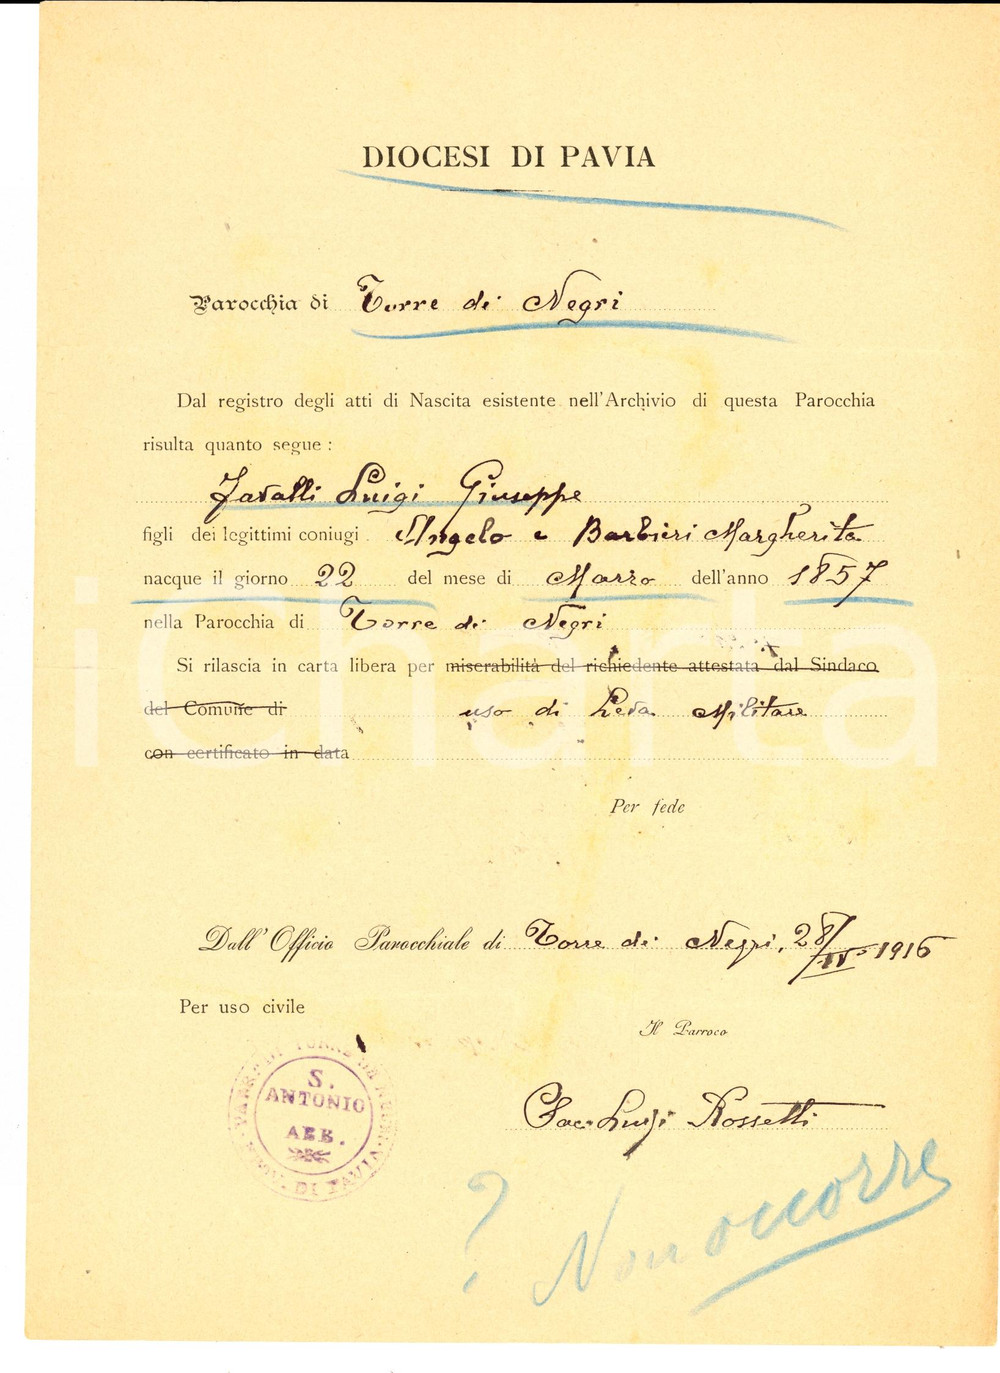 DIOCESI DI PAVIA
Parocchia di Torre de' Negri
Dal registro degli atti di Nascita esistente nell'Archivio di questa Parocchia
risulta quanto segue :
Luigi Giuseppe
figli dei legittimi coniugi Angelo e Barbieri Margherita
nacque il giorno 22 del mese di Marzo dell'anno 1857
nella Parocchia di Torre de' Negri
Si rilascia in carta libera per miserabilità del richiedente attestata dal Sindaco
del Comune di uso di Leva Militare
con certificato in data
Per fede
Dall' Officio Parocchiale di Torre de' Negri, 28/IV° 1916
Per uso civile
Il Parroco
Sac. Luigi Rossetti
S.
ANTONIO
ABB.
PROV. DI PAVIA
? Non occorre
iCharta